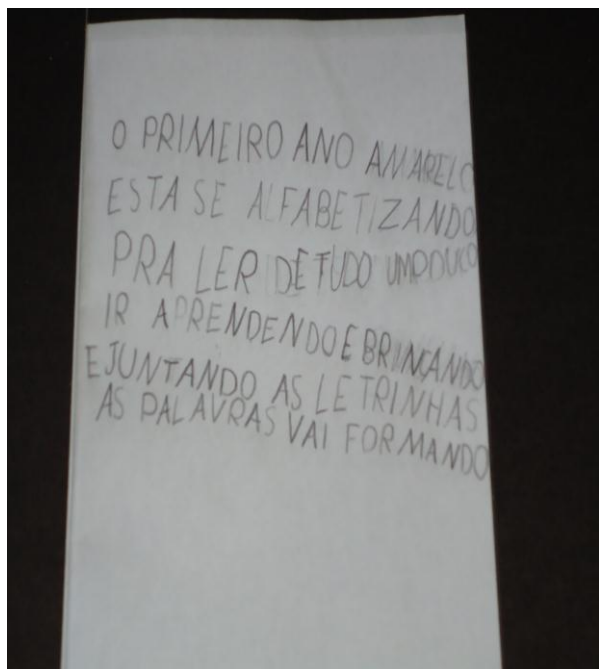 O PRIMEIRO ANO AMARELO
ESTA SE ALFABETIZANDO
PRA LER DE TUDO UM POUCO
IR APRENDENDO E BRINCANDO
E JUNTANDO AS LETRINHAS
AS PALAVRAS VAI FORMANDO